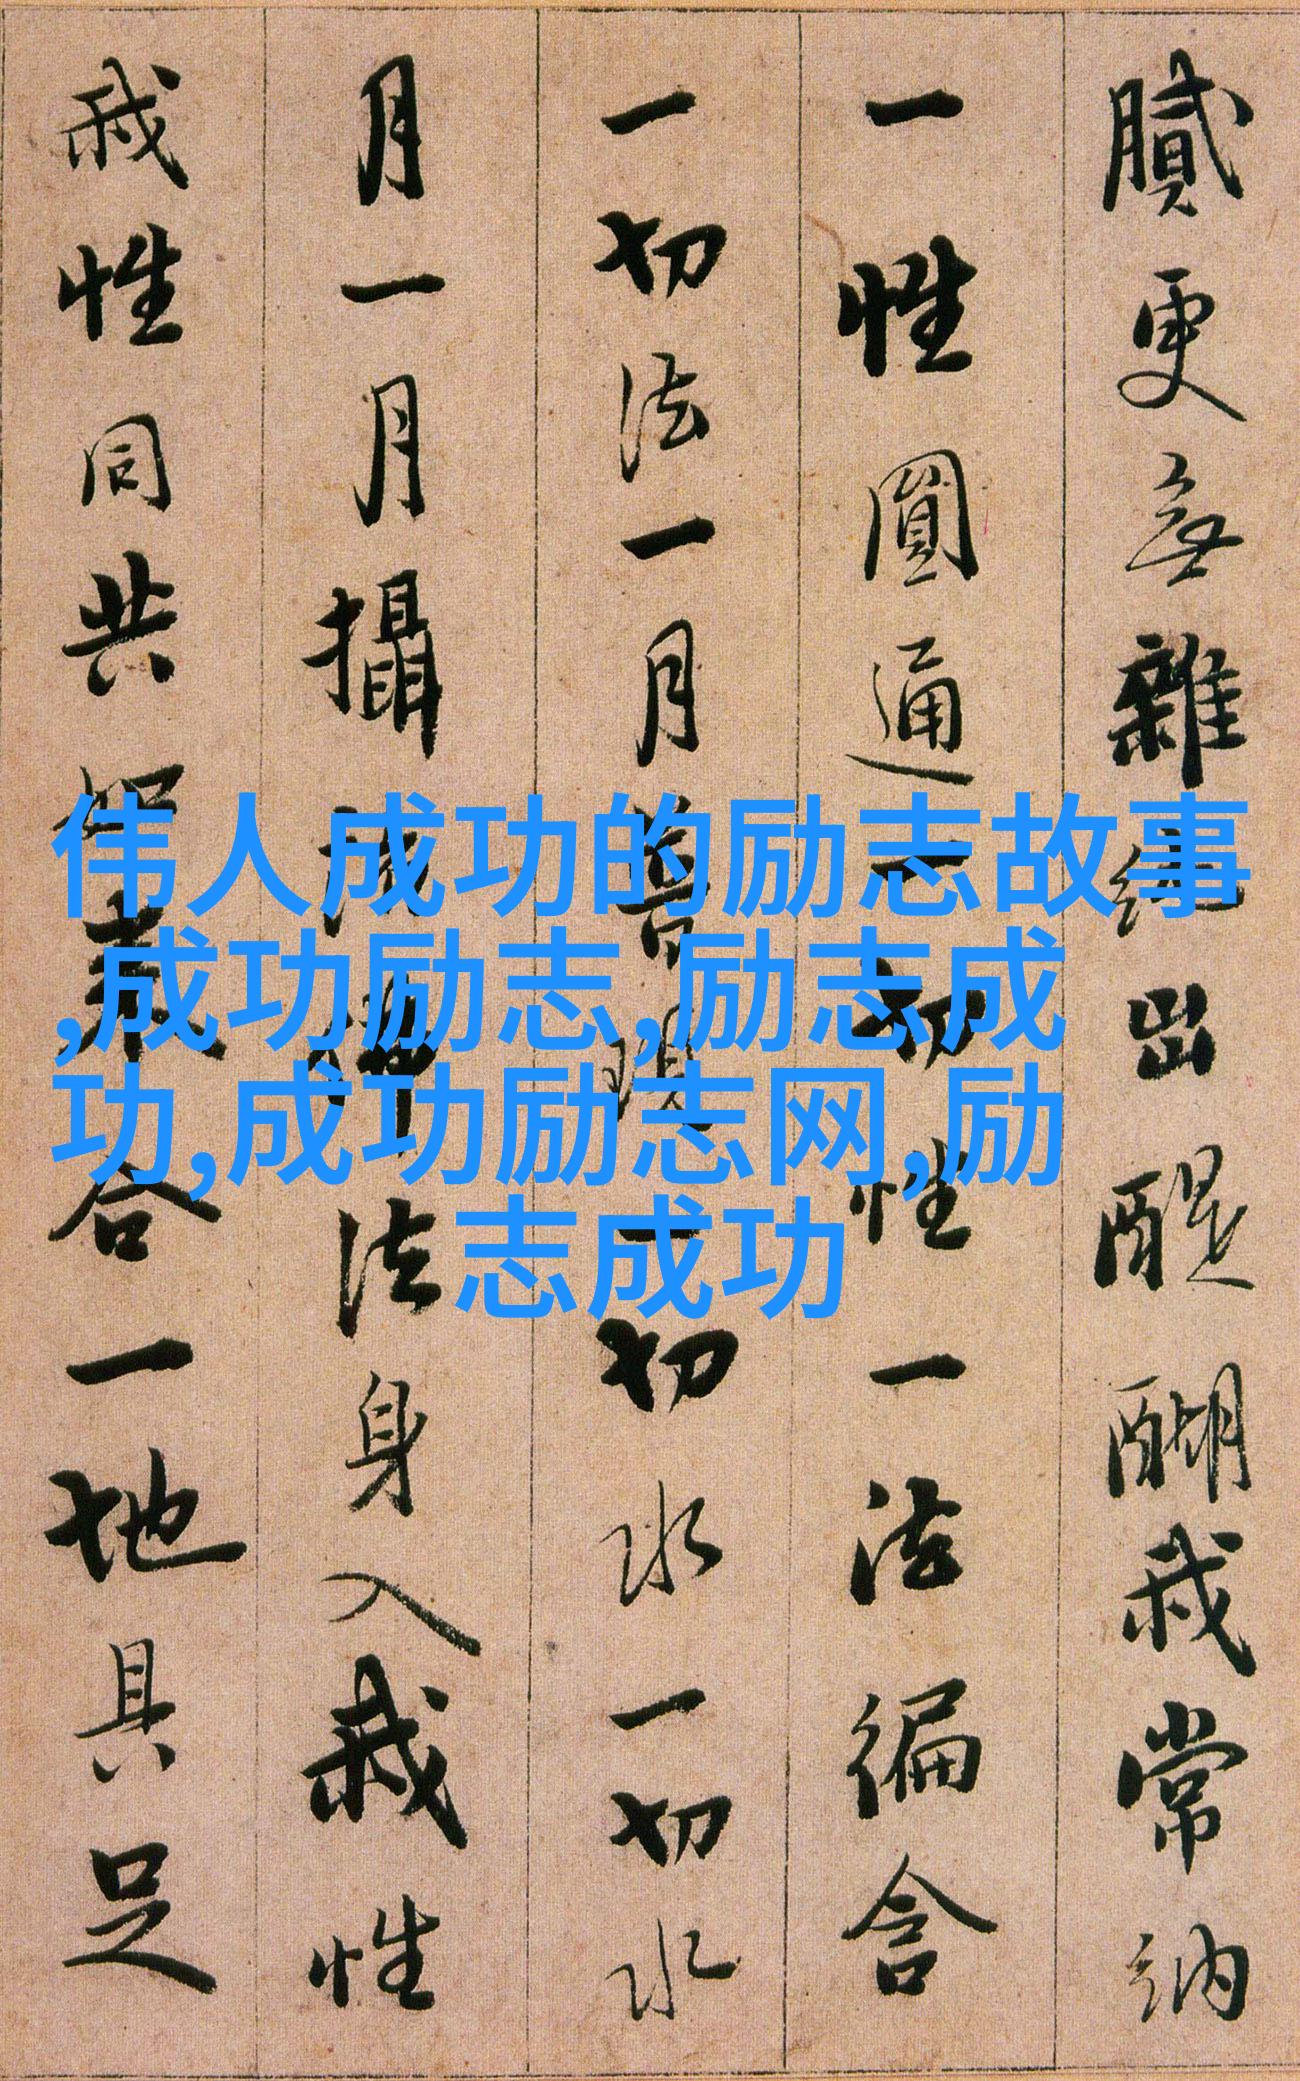 伟人成功的励志故事
,成功励志,励志成
功,成功励志网,励
志成功
膩更無雜出醍醐我常納
一性圓通一切性一法徧含
一切法一月普現一切水一切水
月一月攝佛法身入我性
我性同共如來合一地具足